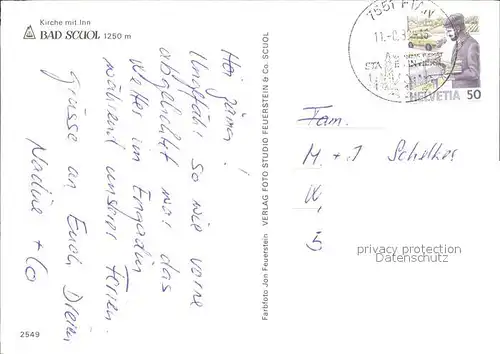 Kirche mit Inn
BAD SCUOL 1250 m
Hoi zäma!
Ungefähr so wie vorne
abgelichtet war das
Wetter im Engadin
während unsrer Ferien.
Grüsse an Euch Dreien
Nadine + Co
2549
Farbfoto Jon Feuerstein VERLAG FOTO STUDIO FEUERSTEIN & Co. SCUOL
7551 FTAN
HELVETIA 50
Fam.
M + J Schelker
W
5
privacy protection
Datenschutz